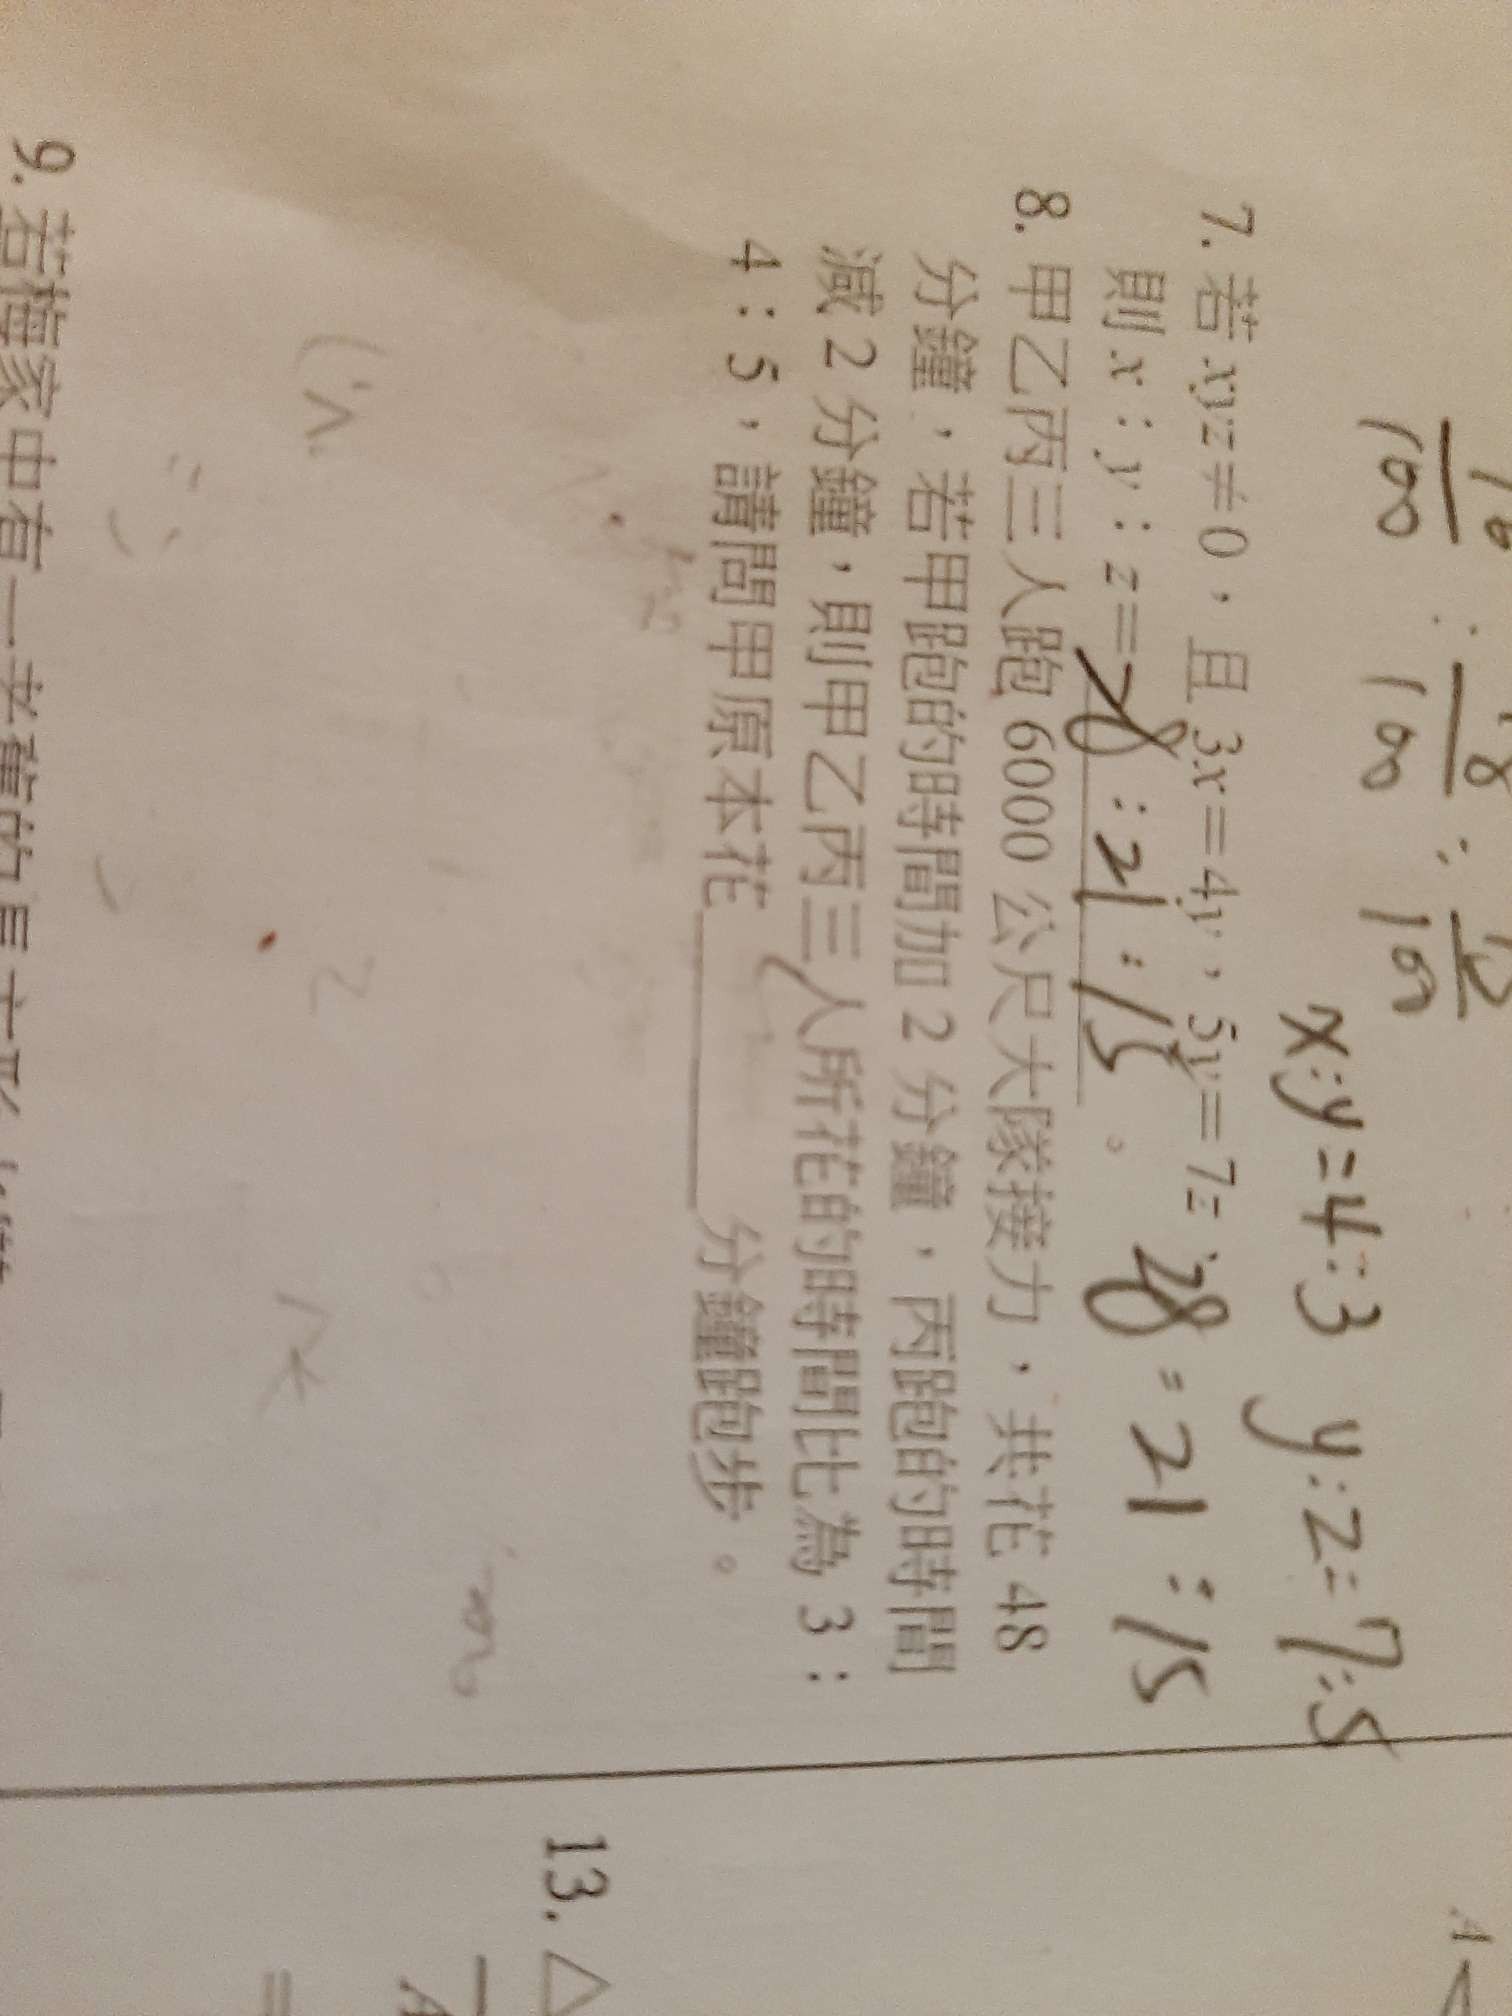 10/100 : 18/100 : 12/100
x:y=4:3 y:z=7:5
7. 若 xyz≠0，且 3x=4y，5y=7z，
28:21:15
則 x：y：z=28:21:15。
8. 甲乙丙三人跑 6000 公尺大隊接力，共花 48
分鐘，若甲跑的時間加 2 分鐘，丙跑的時間
減 2 分鐘，則甲乙丙三人所花的時間比為 3：
4：5，請問甲原本花______分鐘跑步。
9. 若梅家中有一老舊的長方形
13. △
A